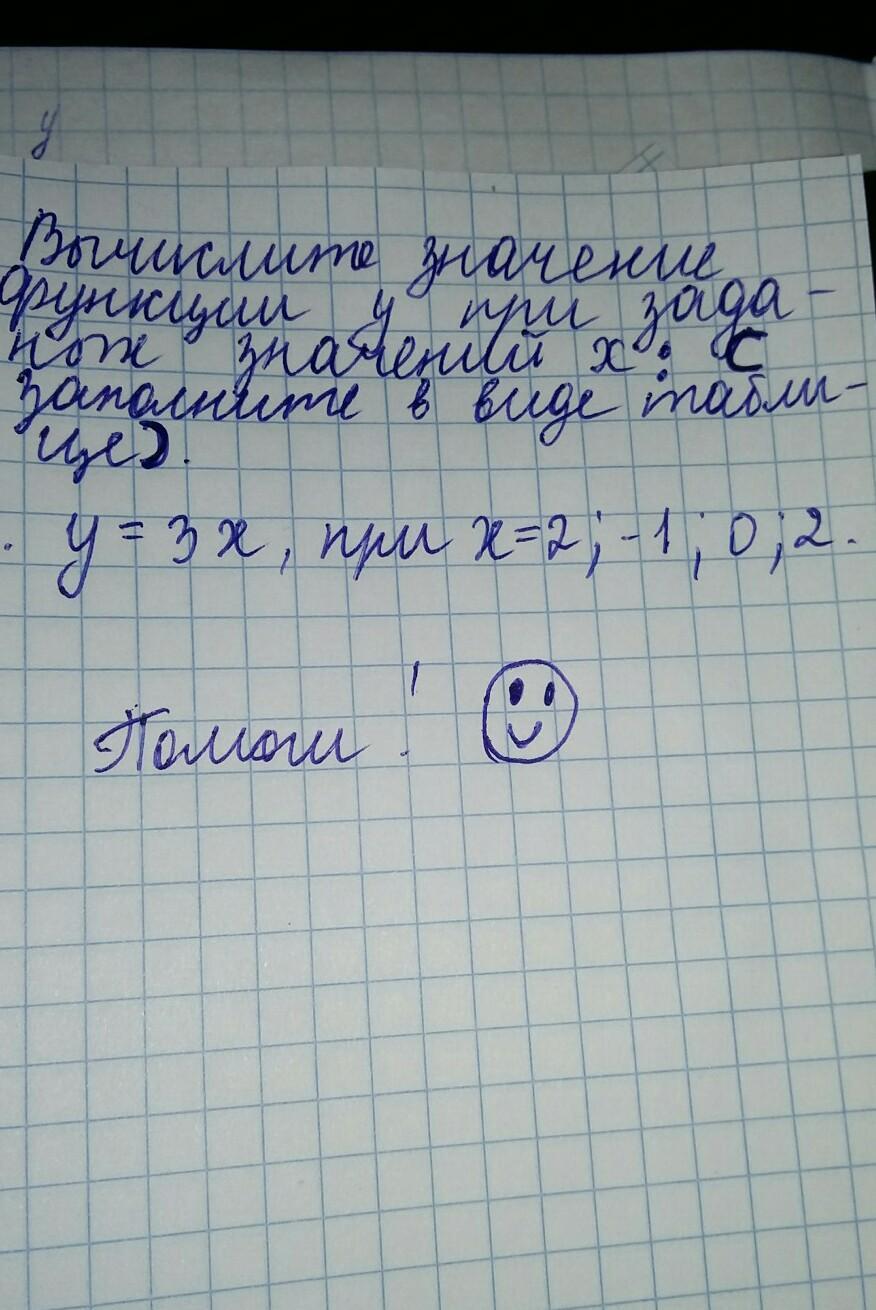 у
Вычислите значение
функции у при зада-
нож значений х: (
заполните в виде табли-
це).
. у = 3х, при х=2; -1; 0; 2.
Помоги!